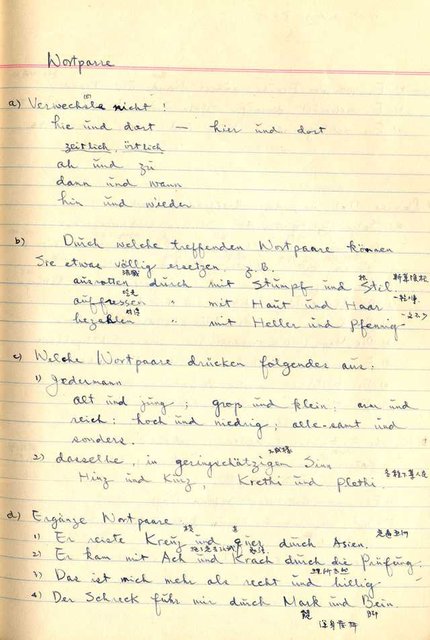 Wortpaare
a) Verwechsle nicht!
hie und dort — hier und dort
zeitlich, örtlich
ab und zu
dann und wann
hin und wieder
b) Durch welche treffenden Wortpaare können
Sie etwas völlig ersetzen. z.B.
ausrotten durch mit Stumpf und Stil 斬草除根
auffressen " mit Haut und Haar
bezahlen " mit Heller und Pfennig
c) Welche Wortpaare drücken folgendes aus:
1) Jedermann
alt und jung; groß und klein; arm und
reich; hoch und niedrig; alle-samt und
sonders.
2) dasselbe, in geringschätzigem Sinn
Hinz und Kunz, Krethi und Plethi
d) Ergänze Wortpaare
1) Er reiste Kreuz und quer durch Asien.
2) Er kam mit Ach und Krach durch die Prüfung.
3) Das ist mich mehr als recht und billig.
4) Der Schreck fuhr mir durch Mark und Bein.